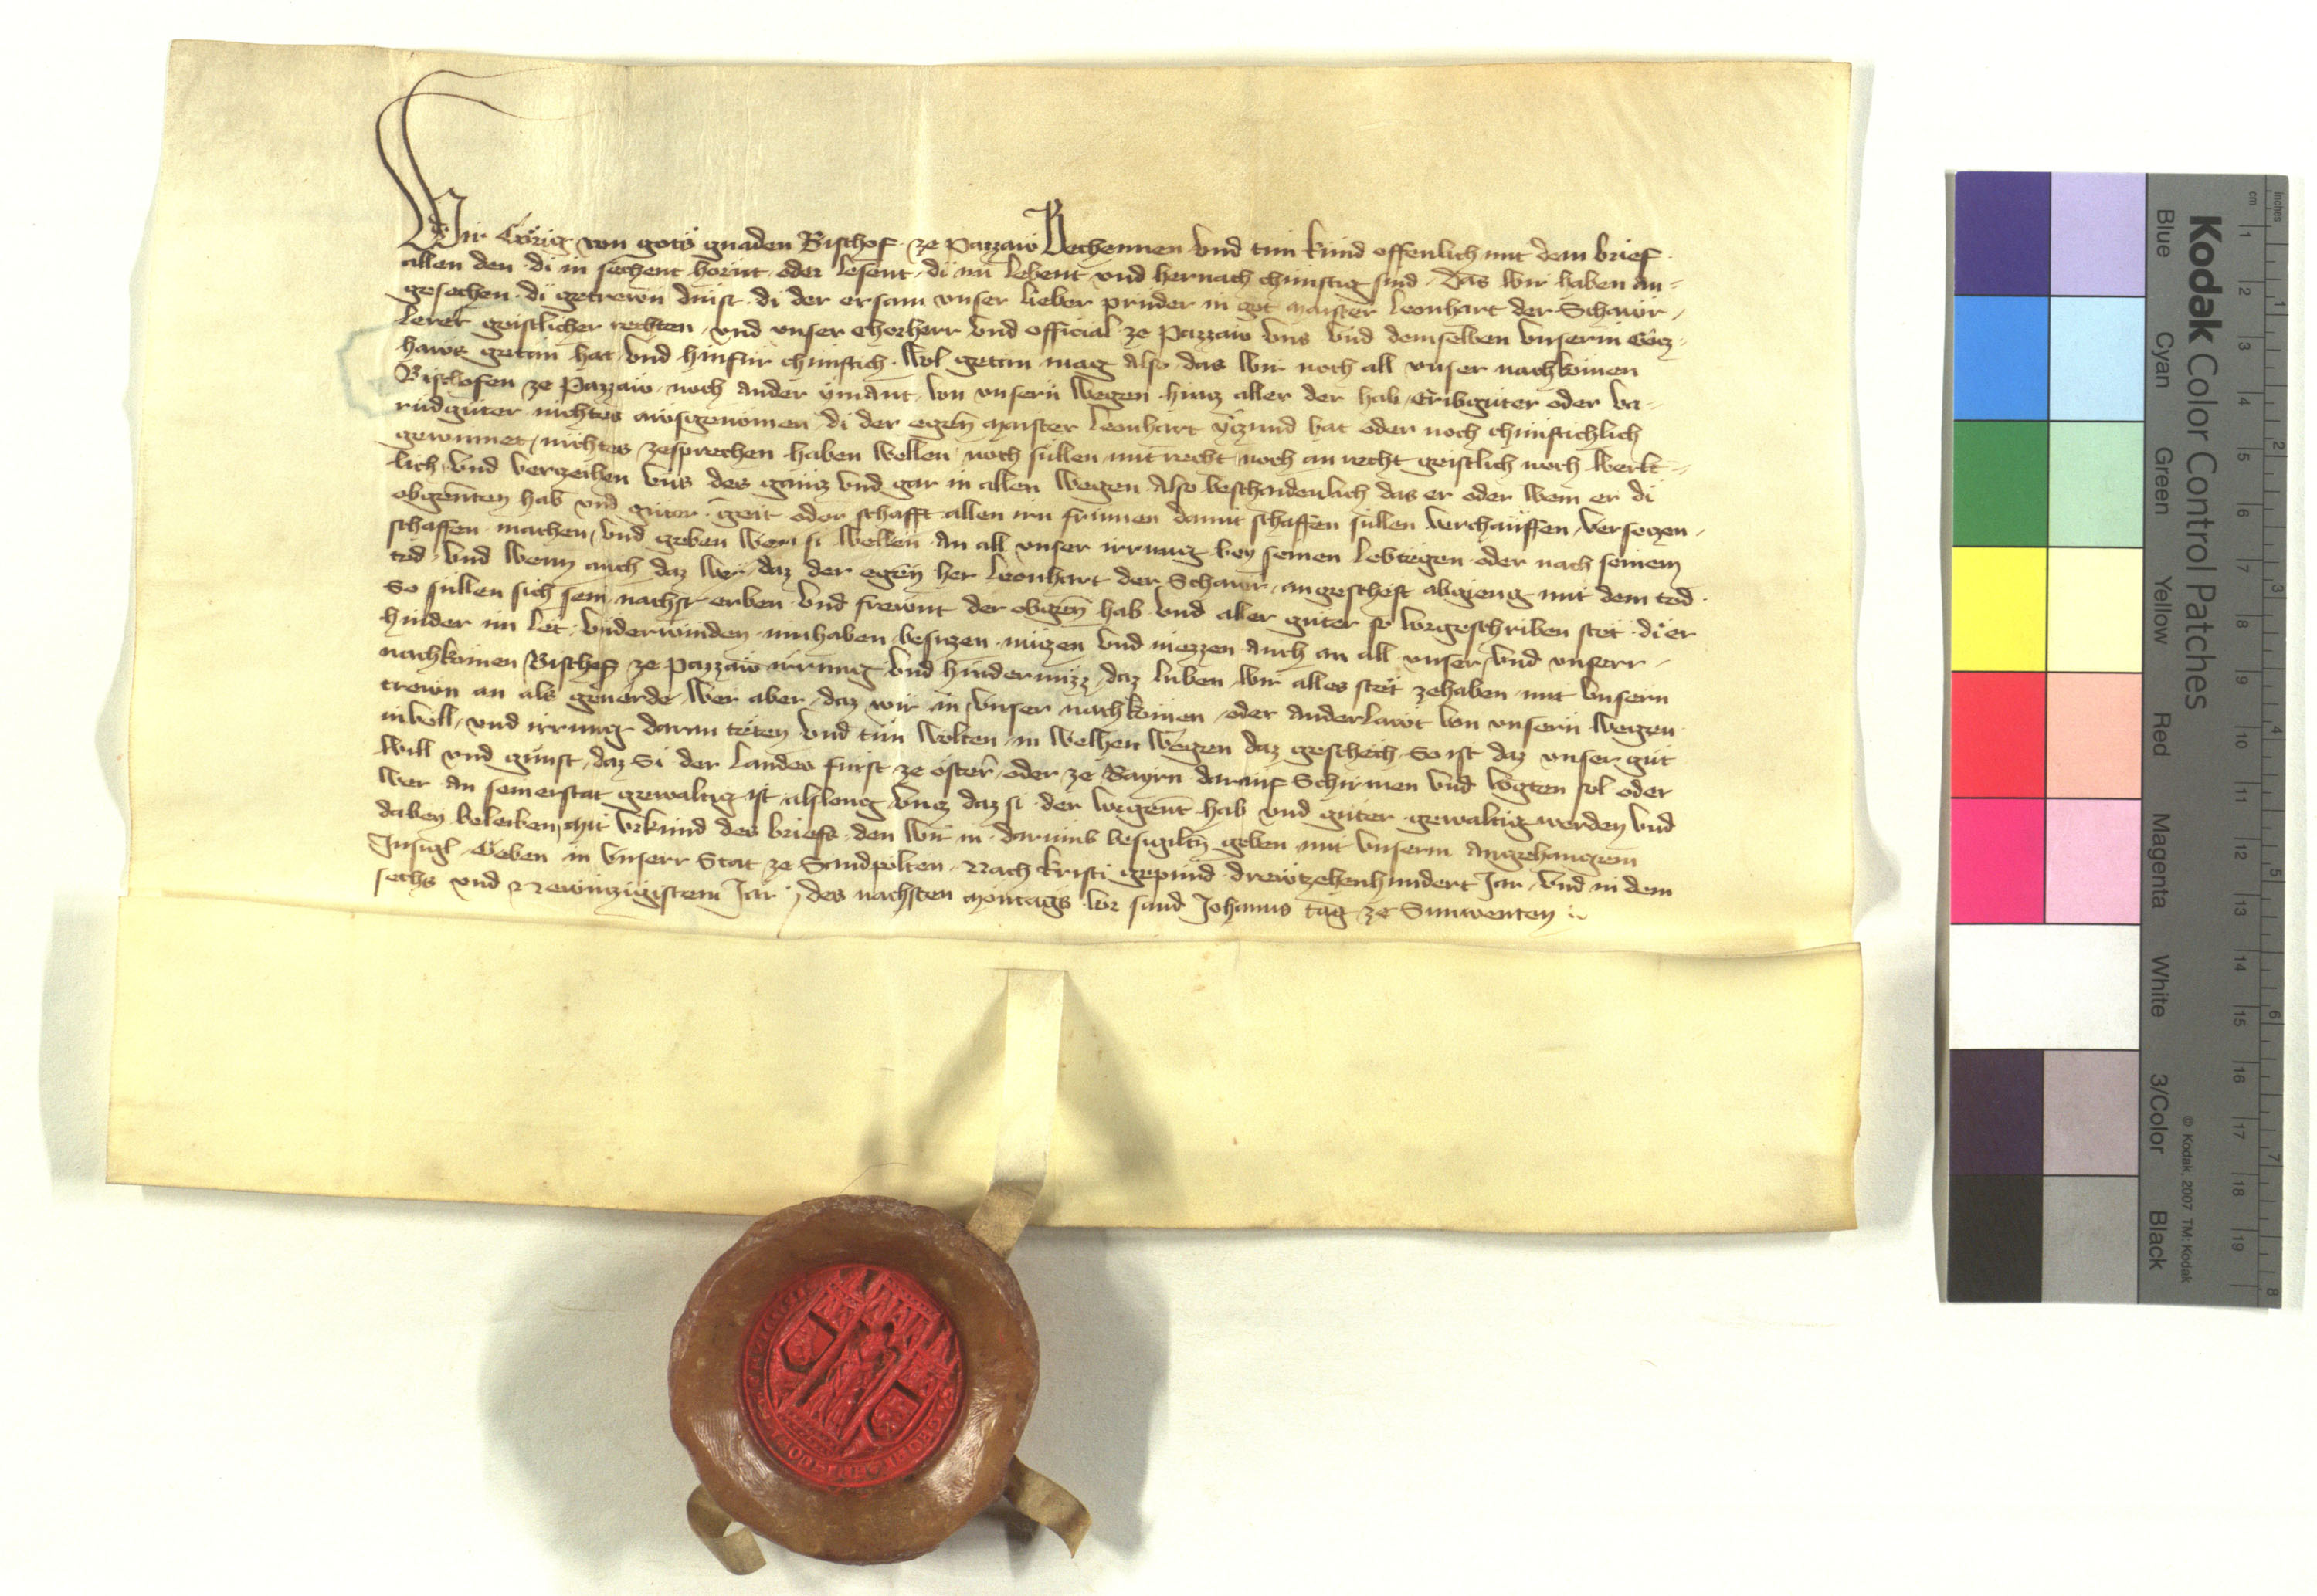 Wir Görig von gots gnaden Bischof ze Pazzaw Bechennen vnd tun kund offenlich mit dem brief
allen den di in sechent hörnt oder lesent di nu lebent vnd hernach chunftig sind Das wir haben an-
gesechen di getrewn dinst di der ersam vnser lieber pruder in got maister Leonhart der Schawr
lerer geistlicher rechten vnd vnser chorherr vnd official ze Pazzaw vns vnd demselben vnserm Gotz-
haws getan hat vnd hinfür chunftich wol getun mag Also das wir noch all vnser nachkömen
Bischofen ze Pazzaw noch ander ymant von vnsern wegen hincz aller der hab Eribgüter oder va-
rndgüter nichtes awsgenomen di der egen maister Leonhart yczund hat oder noch chunftichlich
gewunnet nichtes zesprechen haben wellen noch süllen mit recht noch an recht geistlich noch werlt-
lich vnd verzeihen vns des gancz vnd gar in allen wegen Also beschaidenlich das er oder wem er di
obgenten hab vnd güter geit oder schafft allen irn frumen damit schaffen süllen verchauffen verseczen
schaffen machen vnd geben wem si wellen An all vnser irrung bey seinen lebtegen oder nach seinem
tod Vnd wenn auch daz wer daz der egen her Leonhart der Schawr angescheft abgieng mit dem tod
So süllen sich sein nachst erben vnd frewnt der obgen hab vnd aller güter so vorgeschriben stet di er
hinder im let vnderwinden innhaben besiczen nüczen vnd niezzen Auch an all vnser vnd vnserr
nachkömen Bischof ze Pazzaw irrung vnd hindernüzz daz luben wir alles stet zehaben mit vnsern
trewn an als geuerde Wer aber daz wir in vnser nachkömen oder anderlawt von vnsern wegen
inuell vnd irrung darin teten vnd tün wolten in welhen wegen daz geschech So ist daz vnser gut
will vnd gunst daz Si der Landes fürst ze öster oder ze Bayrn darauf Schirmen vnd vogten sol oder
wer an seinerstat gewaltig ist alslang vncz daz si der vorgent hab vnd güter gewaltig werden vnd
dabey beleiben Mit vrkund des briefs den wir in darumb besigilten geben mit vnserm Angehangem
Insigl Geben in vnserr Stat ze Sandpolten Nach kristi gepurd drewtzehenhundert Jar vnd in dem
sechs vnd Newnzigistem Jar des nachsten Montags vor sand Johanns tag ze Sunwenten
Kodak Color Control Patches
© Kodak, 2007 TM: Kodak
Blue Cyan Green Yellow Red Magenta White 3/Color Black
cm 1 2 3 4 5 6 7 8 9 10 11 12 13 14 15 16 17 18 19
inches 1 2 3 4 5 6 7 8